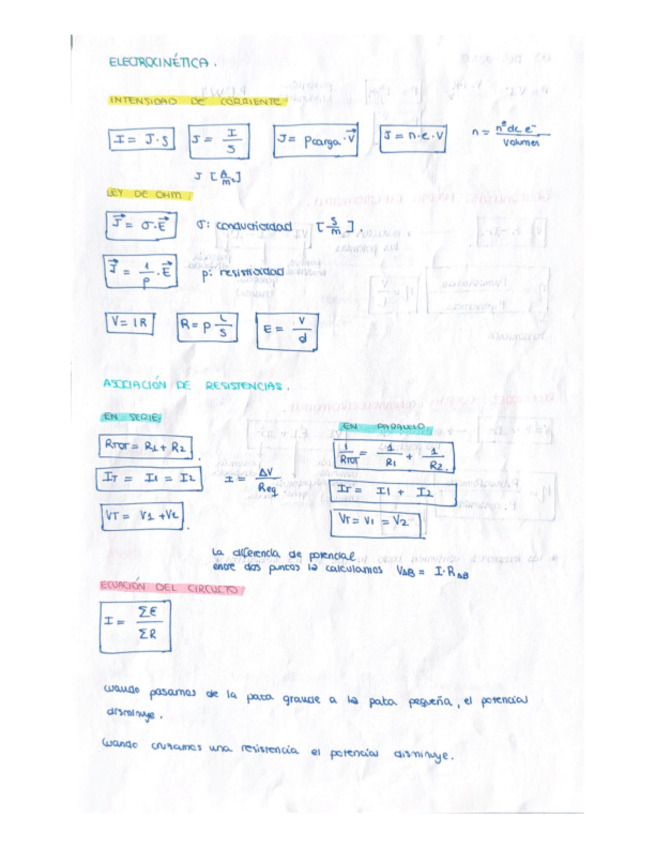 ELECTROCINÉTICA.
INTENSIDAD DE CORRIENTE
I = J·S   J = I/S   J = ρcarga·V⃗   J = n·e·V   n = nº de e⁻/volumen
J [A/m²]
LEY DE OHM:
J⃗ = σ·E⃗   σ: conductividad [S/m].
J⃗ = 1/ρ·E⃗   ρ: resistividad
V = IR   R = ρ L/S   E = V/d
ASOCIACIÓN DE RESISTENCIAS.
EN SERIE   EN PARALELO
RTOT = R1 + R2   1/RTOT = 1/R1 + 1/R2
IT = I1 = I2   I = ΔV/Req   IT = I1 + I2
VT = V1 + V2   VT = V1 = V2
La diferencia de potencial
entre dos puntos la calculamos VAB = I·RAB
ECUACIÓN DEL CIRCUITO
I = ΣE/ΣR
Cuando pasamos de la pata grande a la pata pequeña, el potencial
disminuye.
Cuando cruzamos una resistencia el potencial disminuye.